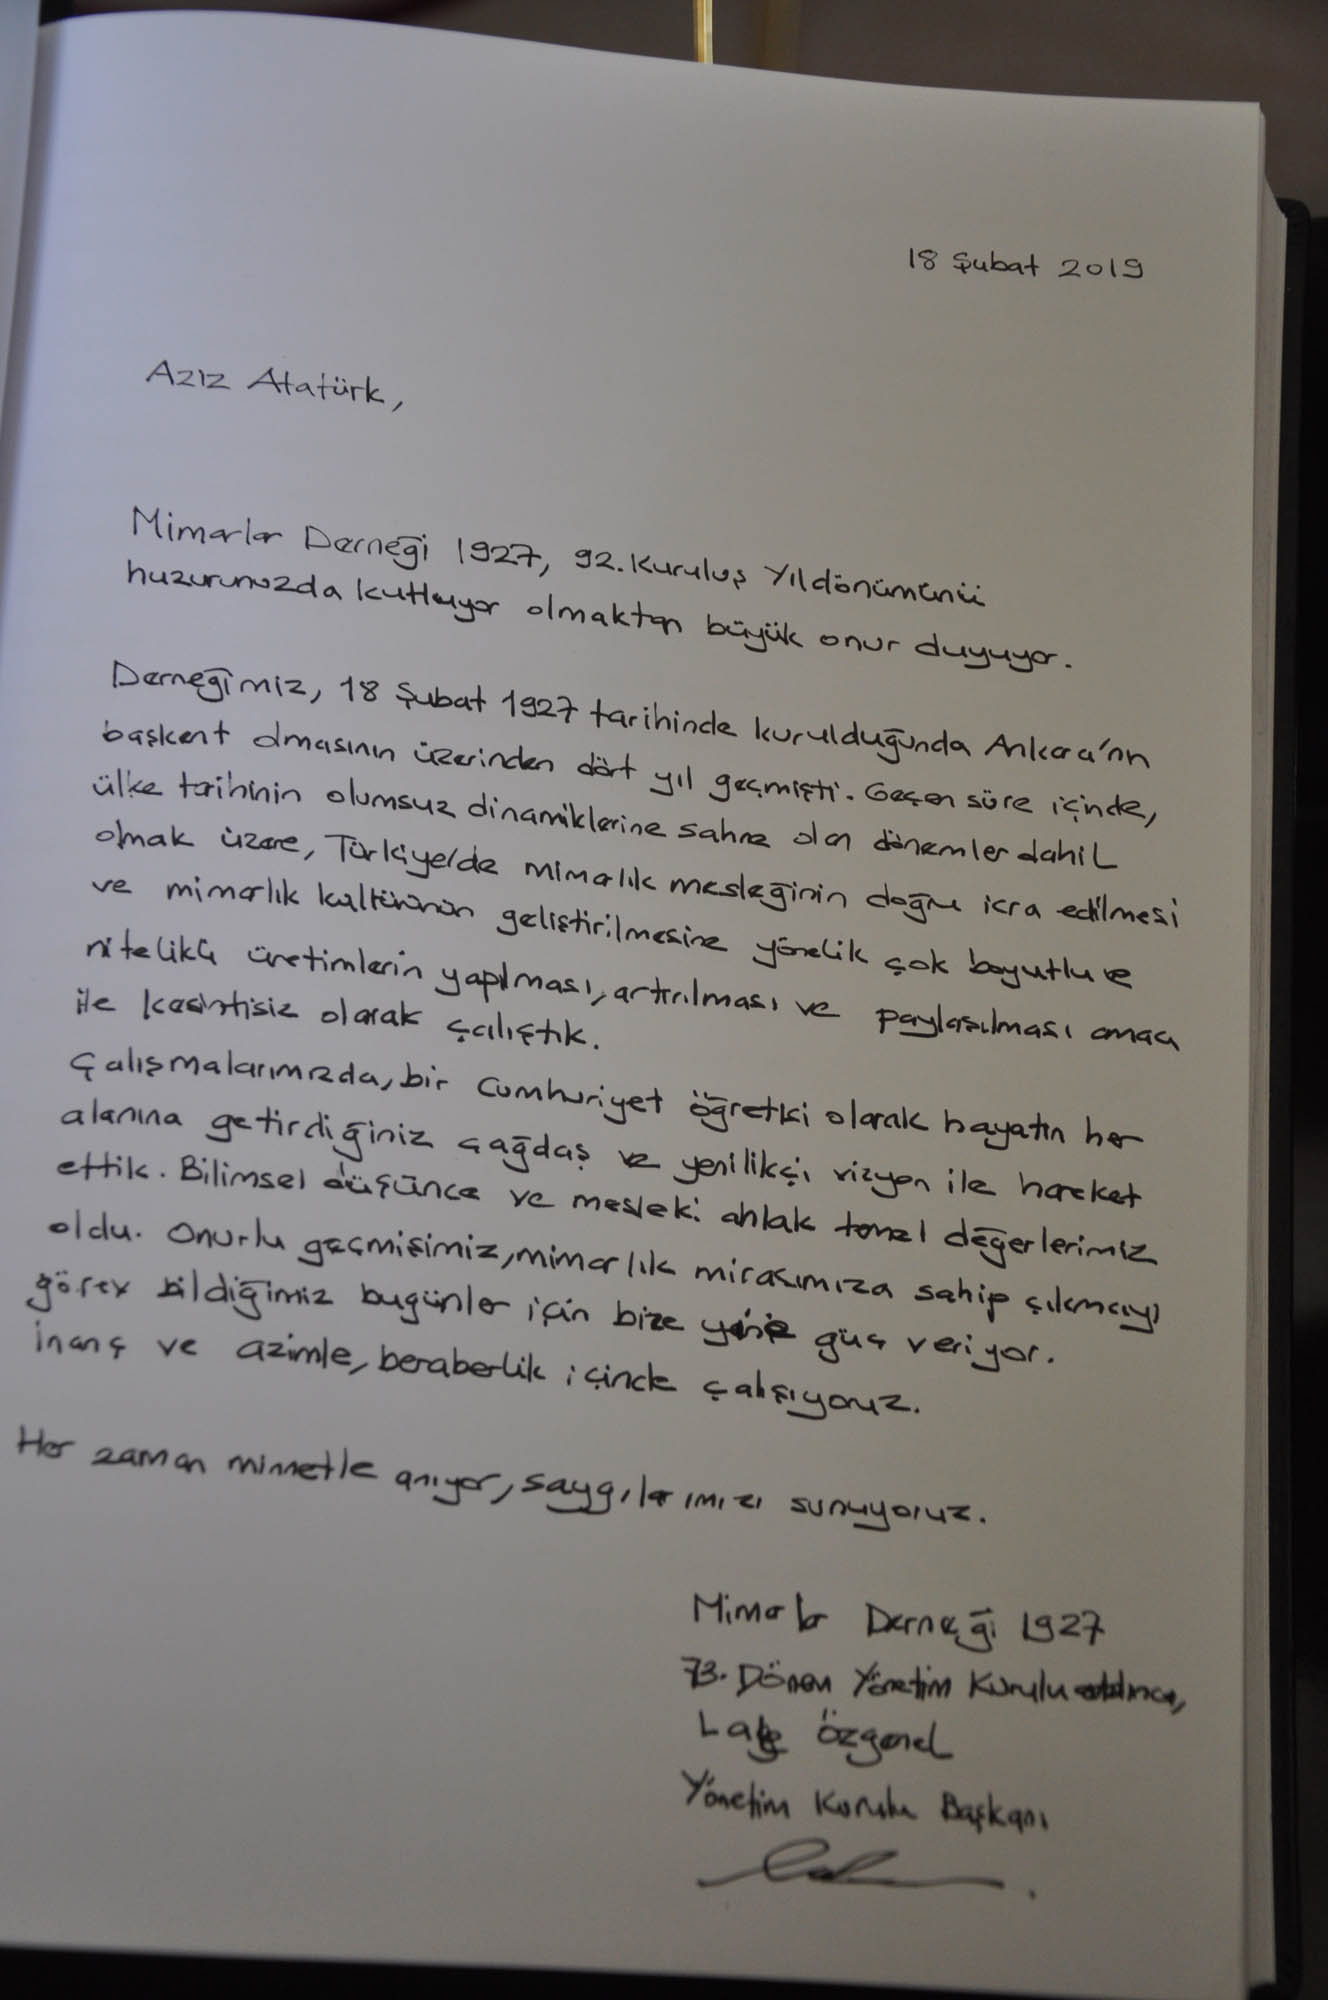 18 Şubat 2019
Aziz Atatürk,
Mimarlar Derneği 1927, 92. Kuruluş Yıldönümünü
huzurunuzda kutluyor olmaktan büyük onur duyuyor.
Derneğimiz, 18 Şubat 1927 tarihinde kurulduğunda Ankara'nın
başkent olmasının üzerinden dört yıl geçmişti. Geçen süre içinde,
ülke tarihinin olumsuz dinamiklerine sahne olan dönemler dahil
olmak üzere, Türkiye'de mimarlık mesleğinin doğru icra edilmesi
ve mimarlık kültürünün geliştirilmesine yönelik çok boyutlu ve
nitelikli üretimlerin yapılması, artırılması ve paylaşılması amacı
ile kesintisiz olarak çalıştık.
Çalışmalarımızda, bir Cumhuriyet öğretisi olarak hayatın her
alanına getirdiğiniz çağdaş ve yenilikçi vizyon ile hareket
ettik. Bilimsel düşünce ve mesleki ahlak temel değerlerimiz
oldu. Onurlu geçmişimiz, mimarlık mirasımıza sahip çıkmayı
görev bildiğimiz bugünler için bize yine güç veriyor.
İnanç ve azimle, beraberlik içinde çalışıyoruz.
Her zaman minnetle anıyor, saygılarımızı sunuyoruz.
Mimarlar Derneği 1927
73. Dönem Yönetim Kurulu adına,
Lale Özgenel
Yönetim Kurulu Başkanı